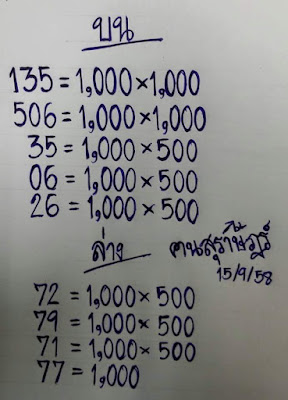 บน
135 = 1,000 × 1,000
506 = 1,000 × 1,000
35 = 1,000 × 500
06 = 1,000 × 500
26 = 1,000 × 500
ล่าง
คนสุราษฎร์
15/9/58
72 = 1,000 × 500
79 = 1,000 × 500
71 = 1,000 × 500
77 = 1,000